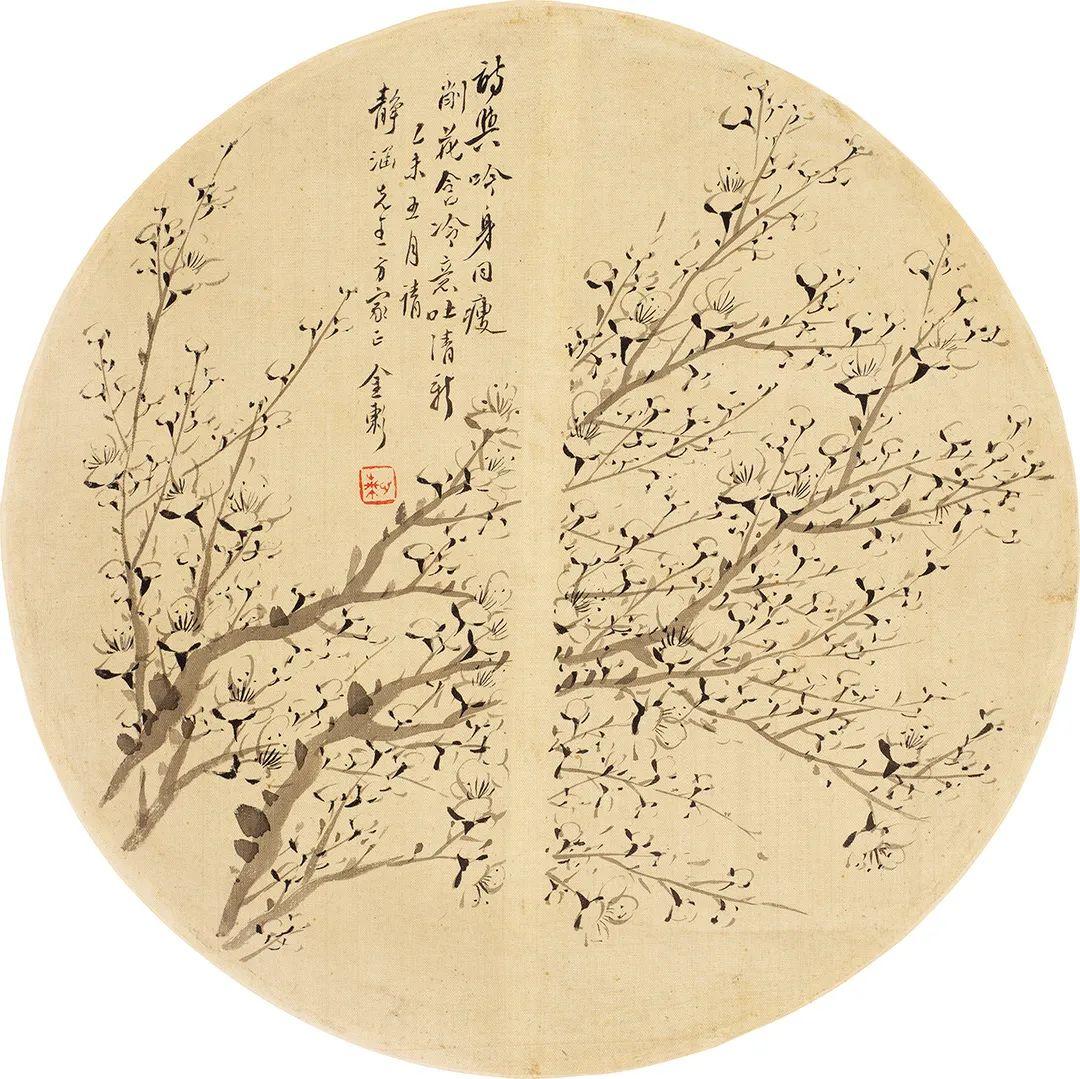 詩與吟身同瘦
削花含冷意吐清新
乙未五月請
靜涵先生方家正 金